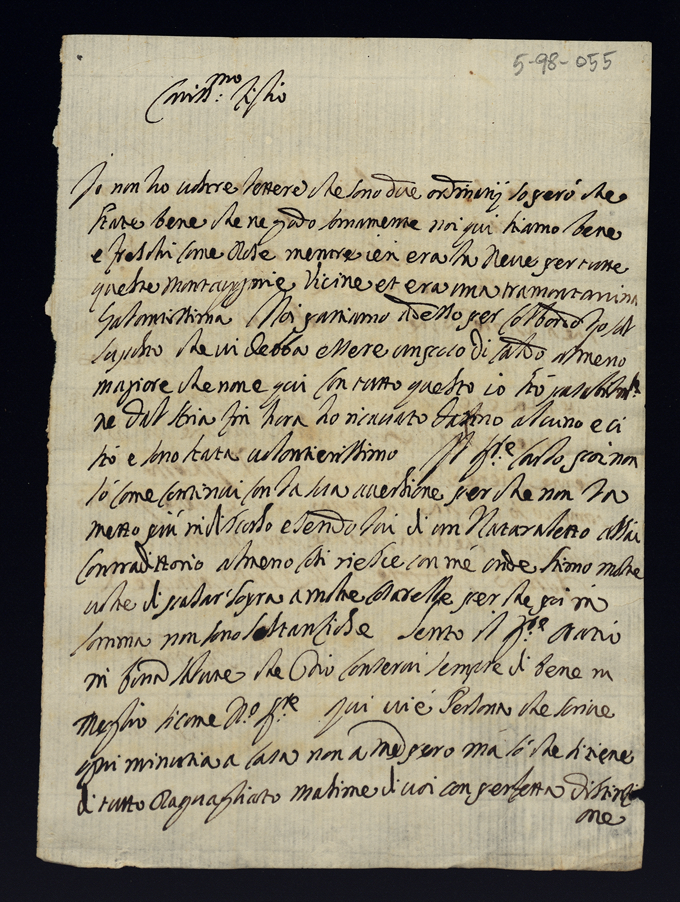 5-98-055
Cariss.mo Figlio
Io non ho vostre lettere che sono due ordinarij spero che
state bene che ne godo somamente noi qui stiamo bene
e freschi come Rose mentre ieri era la Neve per tutte
queste montagnie Vicine et era una tramontanina
Galantissima Noi pariamo adesso per
suposto che vi debba essere un poco di Caldo almeno
magiore che non e qui con tutto questo io stó
ne dal stria fin hora ho ricavato danno alcuno e ci
stó e sono stata volontierissimo Il fr.e Carlo poi non
só come continui con la sua aversione per che non la
metto piú in discorso essendo lui di un Naturaletto assai
Contradittorio almeno cosi riesce con mé onde stimo molte
volte di pasar sopra a molte cosarelle per che poi in
somma non sono sostanziose sento il fr.e Oratio
in bona salute che Dio conservi sempre di bene in
meglio sicome N.o fr.e qui vi é Persona che scrive
ogni minutia a casa non a mé pero má só che si tiene
di tutto Raguagliato masime di voi con perfetta distinzi
one